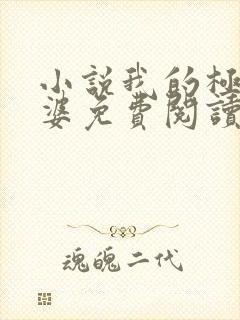 小說我的極
婆免費閱讀
魂魄二代